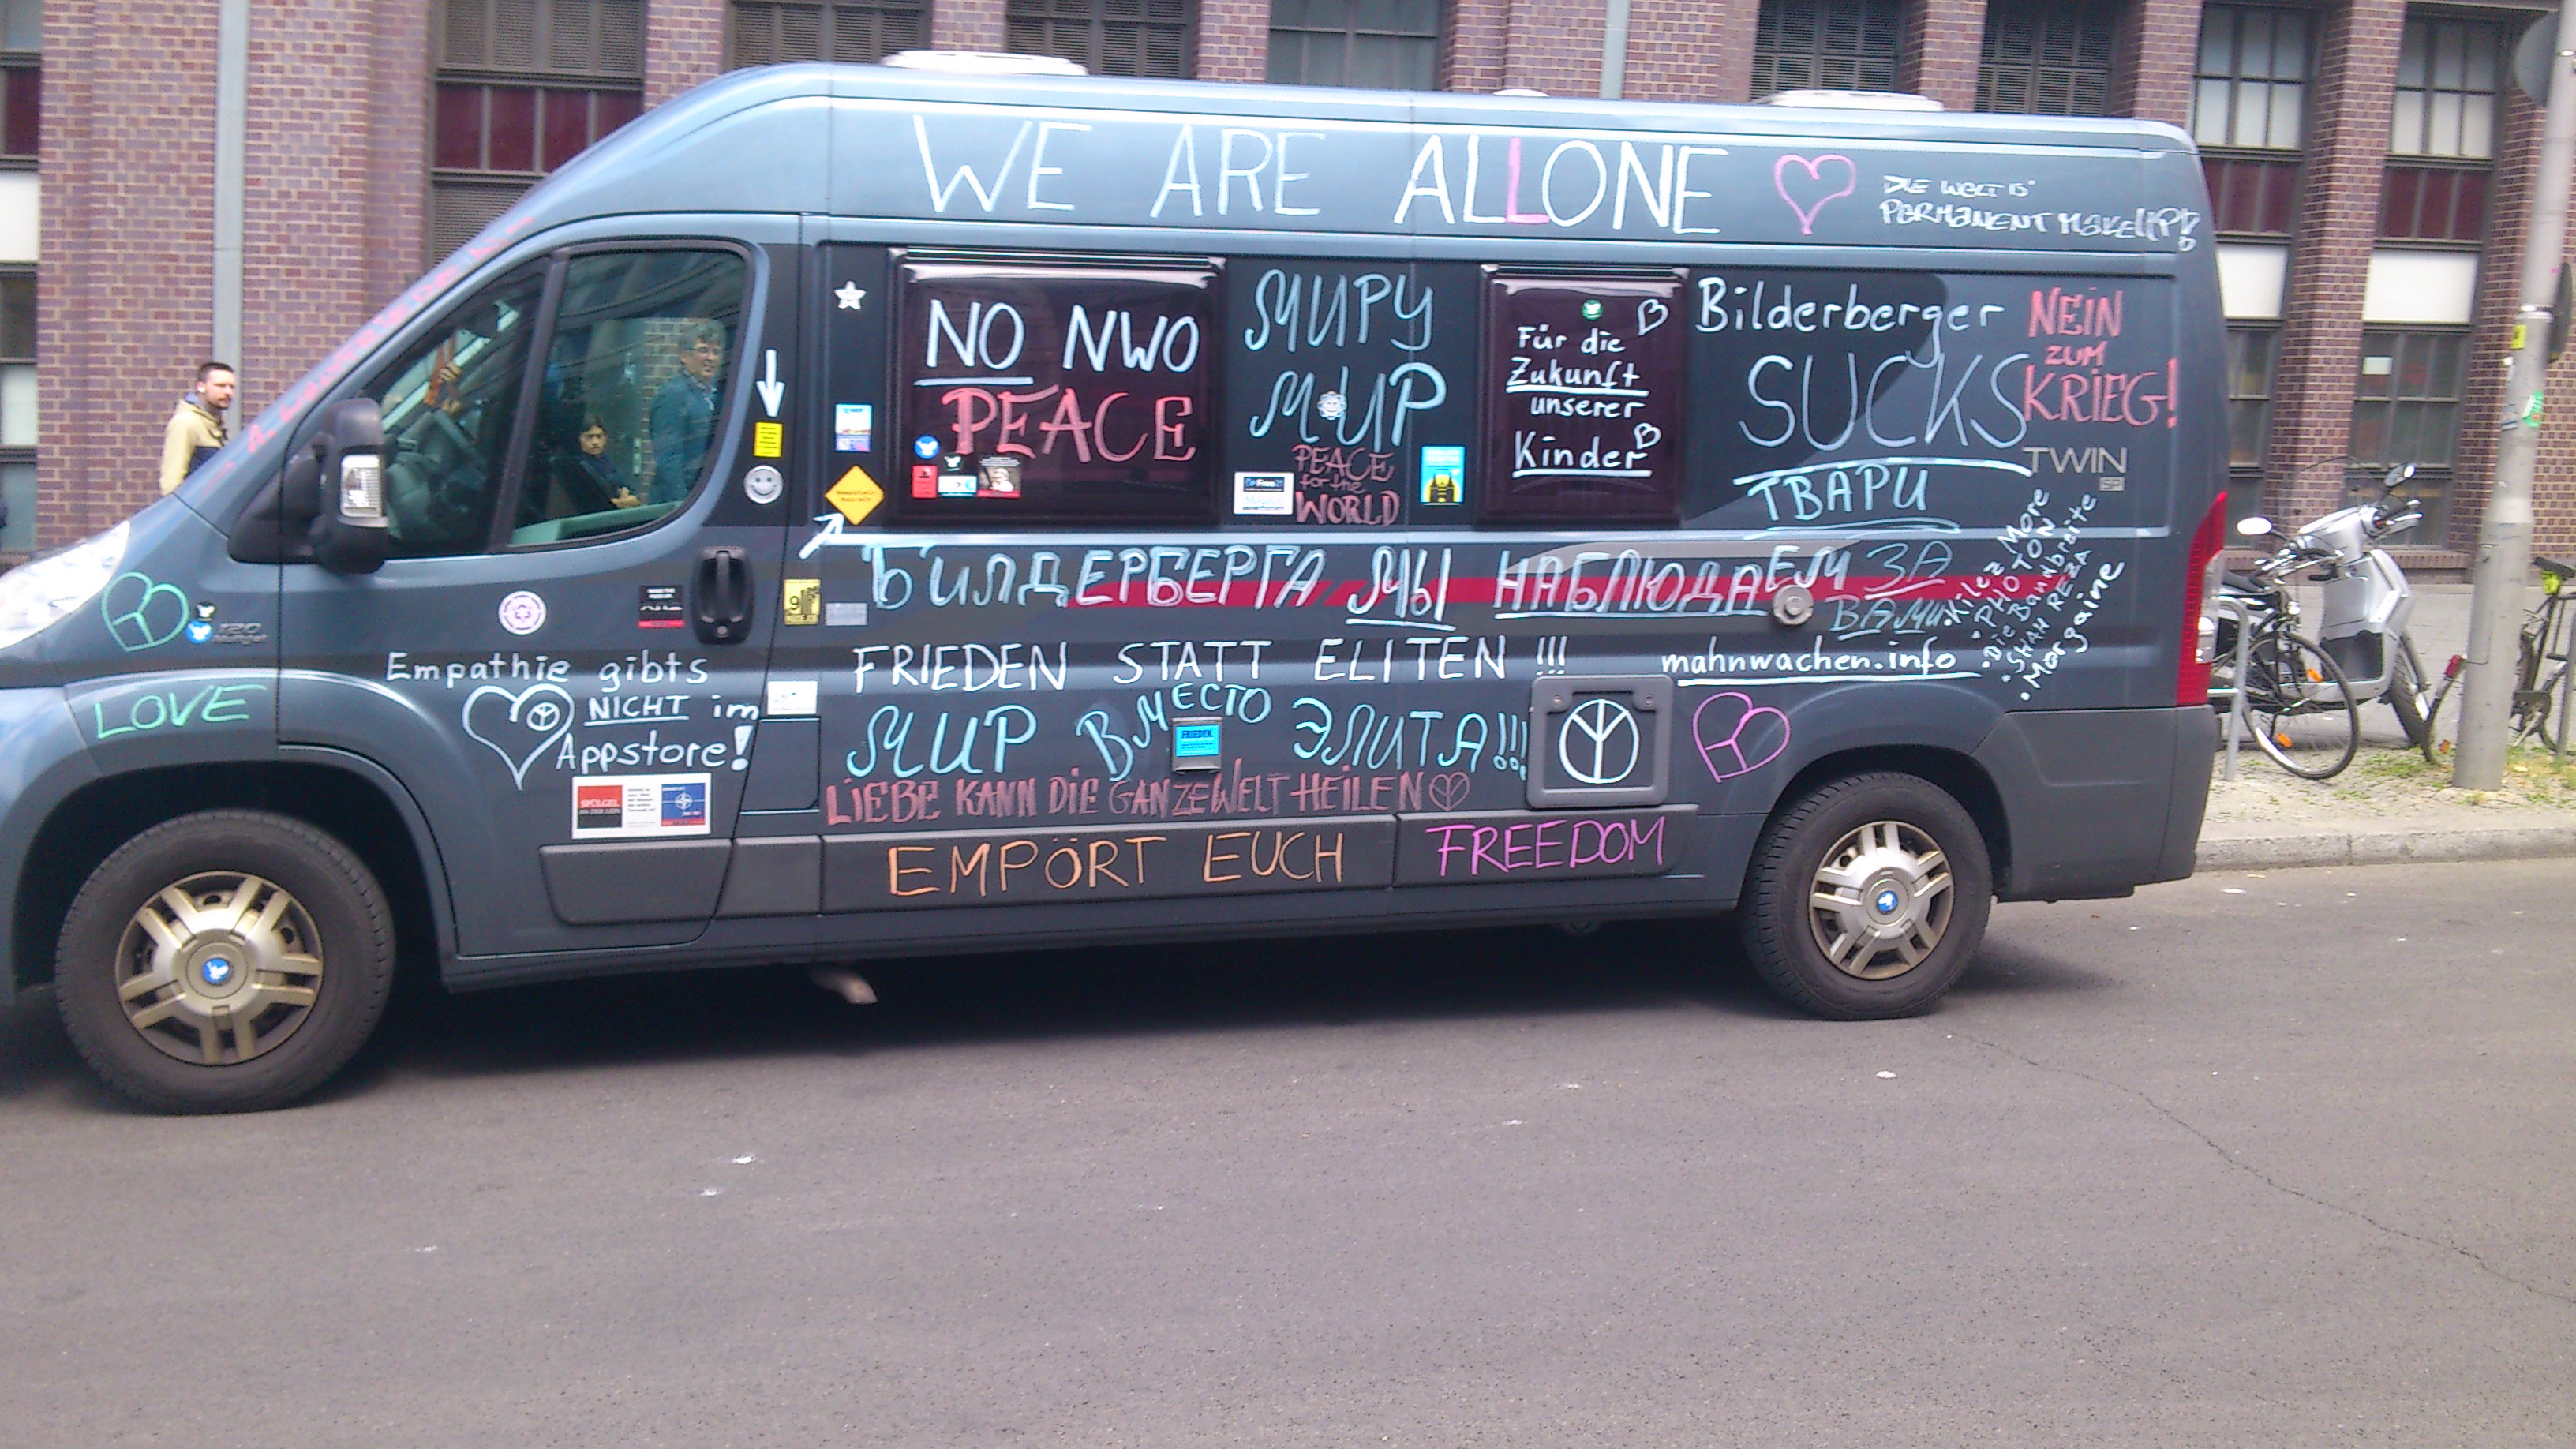 WE ARE ALLONE
DIE WELT IS
PERMANENT MAKEUP!
NO NWO
PEACE
МИРУ
МИР
PEACE
for the
WORLD
Für die
Zukunft
unserer
Kinder
Bilderberger
SUCKS
NEIN
ZUM
KRIEG!
TWIN
ТВАРИ
БИЛДЕРБЕРГА МЫ НАБЛЮДАЕМ ЗА
ВАМИ
FRIEDEN STATT ELITEN !!!
mahnwachen.info
• Kilez More
• PHOTON
• Die Bandbreite
• SHAH REZA
• Morgaine
МИР ВМЕСТО ЭЛИТА!!!
FRIEDEN.
LIEBE KANN DIE GANZE WELT HEILEN
EMPÖRT EUCH
FREEDOM
Empathie gibts
NICHT im
Appstore!
LOVE
SPÜLGEL